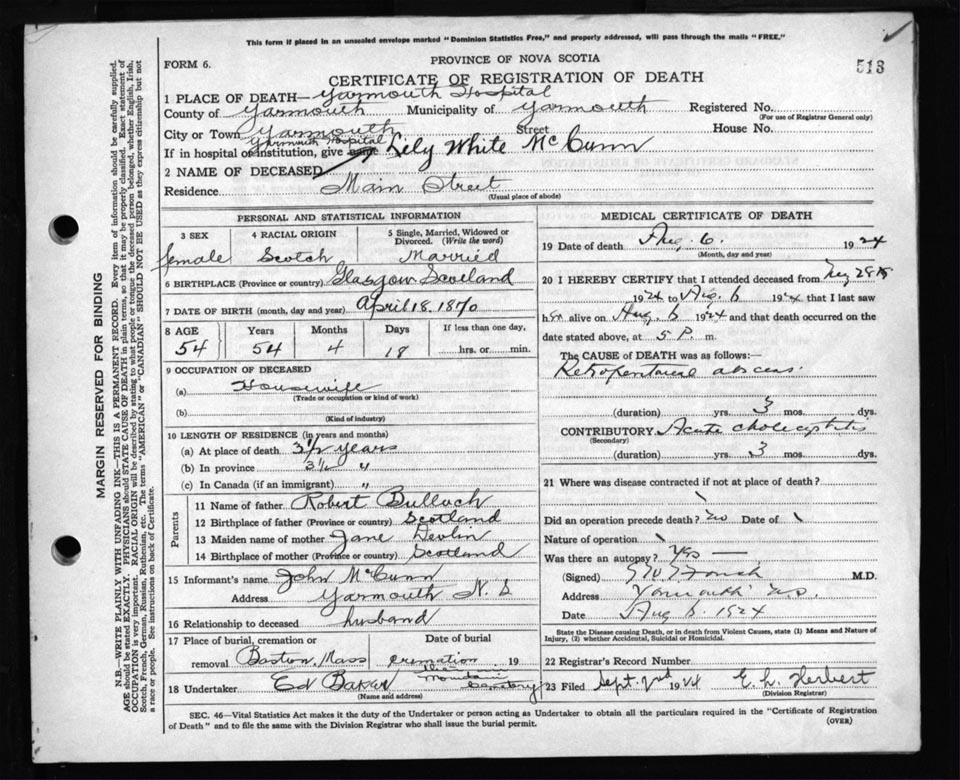 This form if placed in an unsealed envelope marked "Dominion Statistics Free," and properly addressed, will pass through the mails "FREE."
FORM 6.
PROVINCE OF NOVA SCOTIA
513
CERTIFICATE OF REGISTRATION OF DEATH
1 PLACE OF DEATH— Yarmouth Hospital
County of Yarmouth Municipality of Yarmouth Registered No.
(For use of Registrar General only)
City or Town Yarmouth Street House No.
Yarmouth Hospital
If in hospital or institution, give name Lely White McCunn
2 NAME OF DECEASED
Residence Main Street
(Usual place of abode)
PERSONAL AND STATISTICAL INFORMATION
3 SEX 4 RACIAL ORIGIN 5 Single, Married, Widowed or Divorced. (Write the word)
female Scotch Married
6 BIRTHPLACE (Province or country) Glasgow Scotland
7 DATE OF BIRTH (month, day and year) April 18. 1870
8 AGE Years Months Days If less than one day,
54 54 4 18 hrs. or min.
9 OCCUPATION OF DECEASED
(a) Housewife
(Trade or occupation or kind of work)
(b)
(Kind of industry)
10 LENGTH OF RESIDENCE (in years and months)
(a) At place of death 3½ years
(b) In province 3½ "
(c) In Canada (if an immigrant) "
Parents
11 Name of father Robert Bulloch
12 Birthplace of father (Province or country) Scotland
13 Maiden name of mother Jane Devlin
14 Birthplace of mother (Province or country) Scotland
15 Informant's name John McCunn
Address Yarmouth N. S
16 Relationship to deceased husband
17 Place of burial, cremation or removal Boston, Mass
Date of burial
cremation 19
18 Undertaker Ed Baker
(Name and address)
Mountain
MEDICAL CERTIFICATE OF DEATH
19 Date of death Aug. 6. 1924
(Month, day and year)
20 I HEREBY CERTIFY that I attended deceased from
1924 to Aug. 6 1924 that I last saw
her alive on Aug. 6 1924 and that death occurred on the
date stated above, at 5 P. m.
The CAUSE OF DEATH was as follows:
abscess.
(duration) yrs. 3 mos. dys.
CONTRIBUTORY Acute
(Secondary)
(duration) yrs. 3 mos. dys.
21 Where was disease contracted if not at place of death?
Did an operation precede death? no Date of
Nature of operation
Was there an autopsy? Yes —
(Signed) M.D.
Address Yarmouth N.S.
Date Aug 6 1924
State the Disease causing Death, or in death from Violent Causes, state (1) Means and Nature of Injury, (2) whether Accidental, Suicidal or Homicidal.
22 Registrar's Record Number
23 Filed Sept. 2nd 1924 E. L. Herbert
(Division Registrar)
SEC. 46—Vital Statistics Act makes it the duty of the Undertaker or person acting as Undertaker to obtain all the particulars required in the "Certificate of Registration
of Death" and to file the same with the Division Registrar who shall issue the burial permit.
(OVER)
MARGIN RESERVED FOR BINDING
N.B.—WRITE PLAINLY WITH UNFADING INK—THIS IS A PERMANENT RECORD. Every item of information should be carefully supplied.
AGE should be stated EXACTLY. PHYSICIANS should STATE CAUSE OF DEATH in plain terms, so that it may be properly classified. Exact statement of
OCCUPATION is very important. RACIAL ORIGIN will be described by stating to what people or tongue the deceased person belonged, whether English, Irish,
Scotch, French, German, Russian, Ruthenian, etc. The terms "AMERICAN" or "CANADIAN" SHOULD NOT BE USED as they express citizenship but not
a race or people. See instructions on back of Certificate.